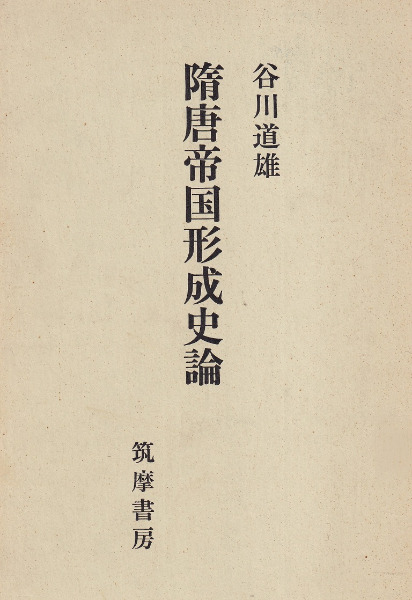 谷川道雄
隋唐帝国形成史論
筑摩書房